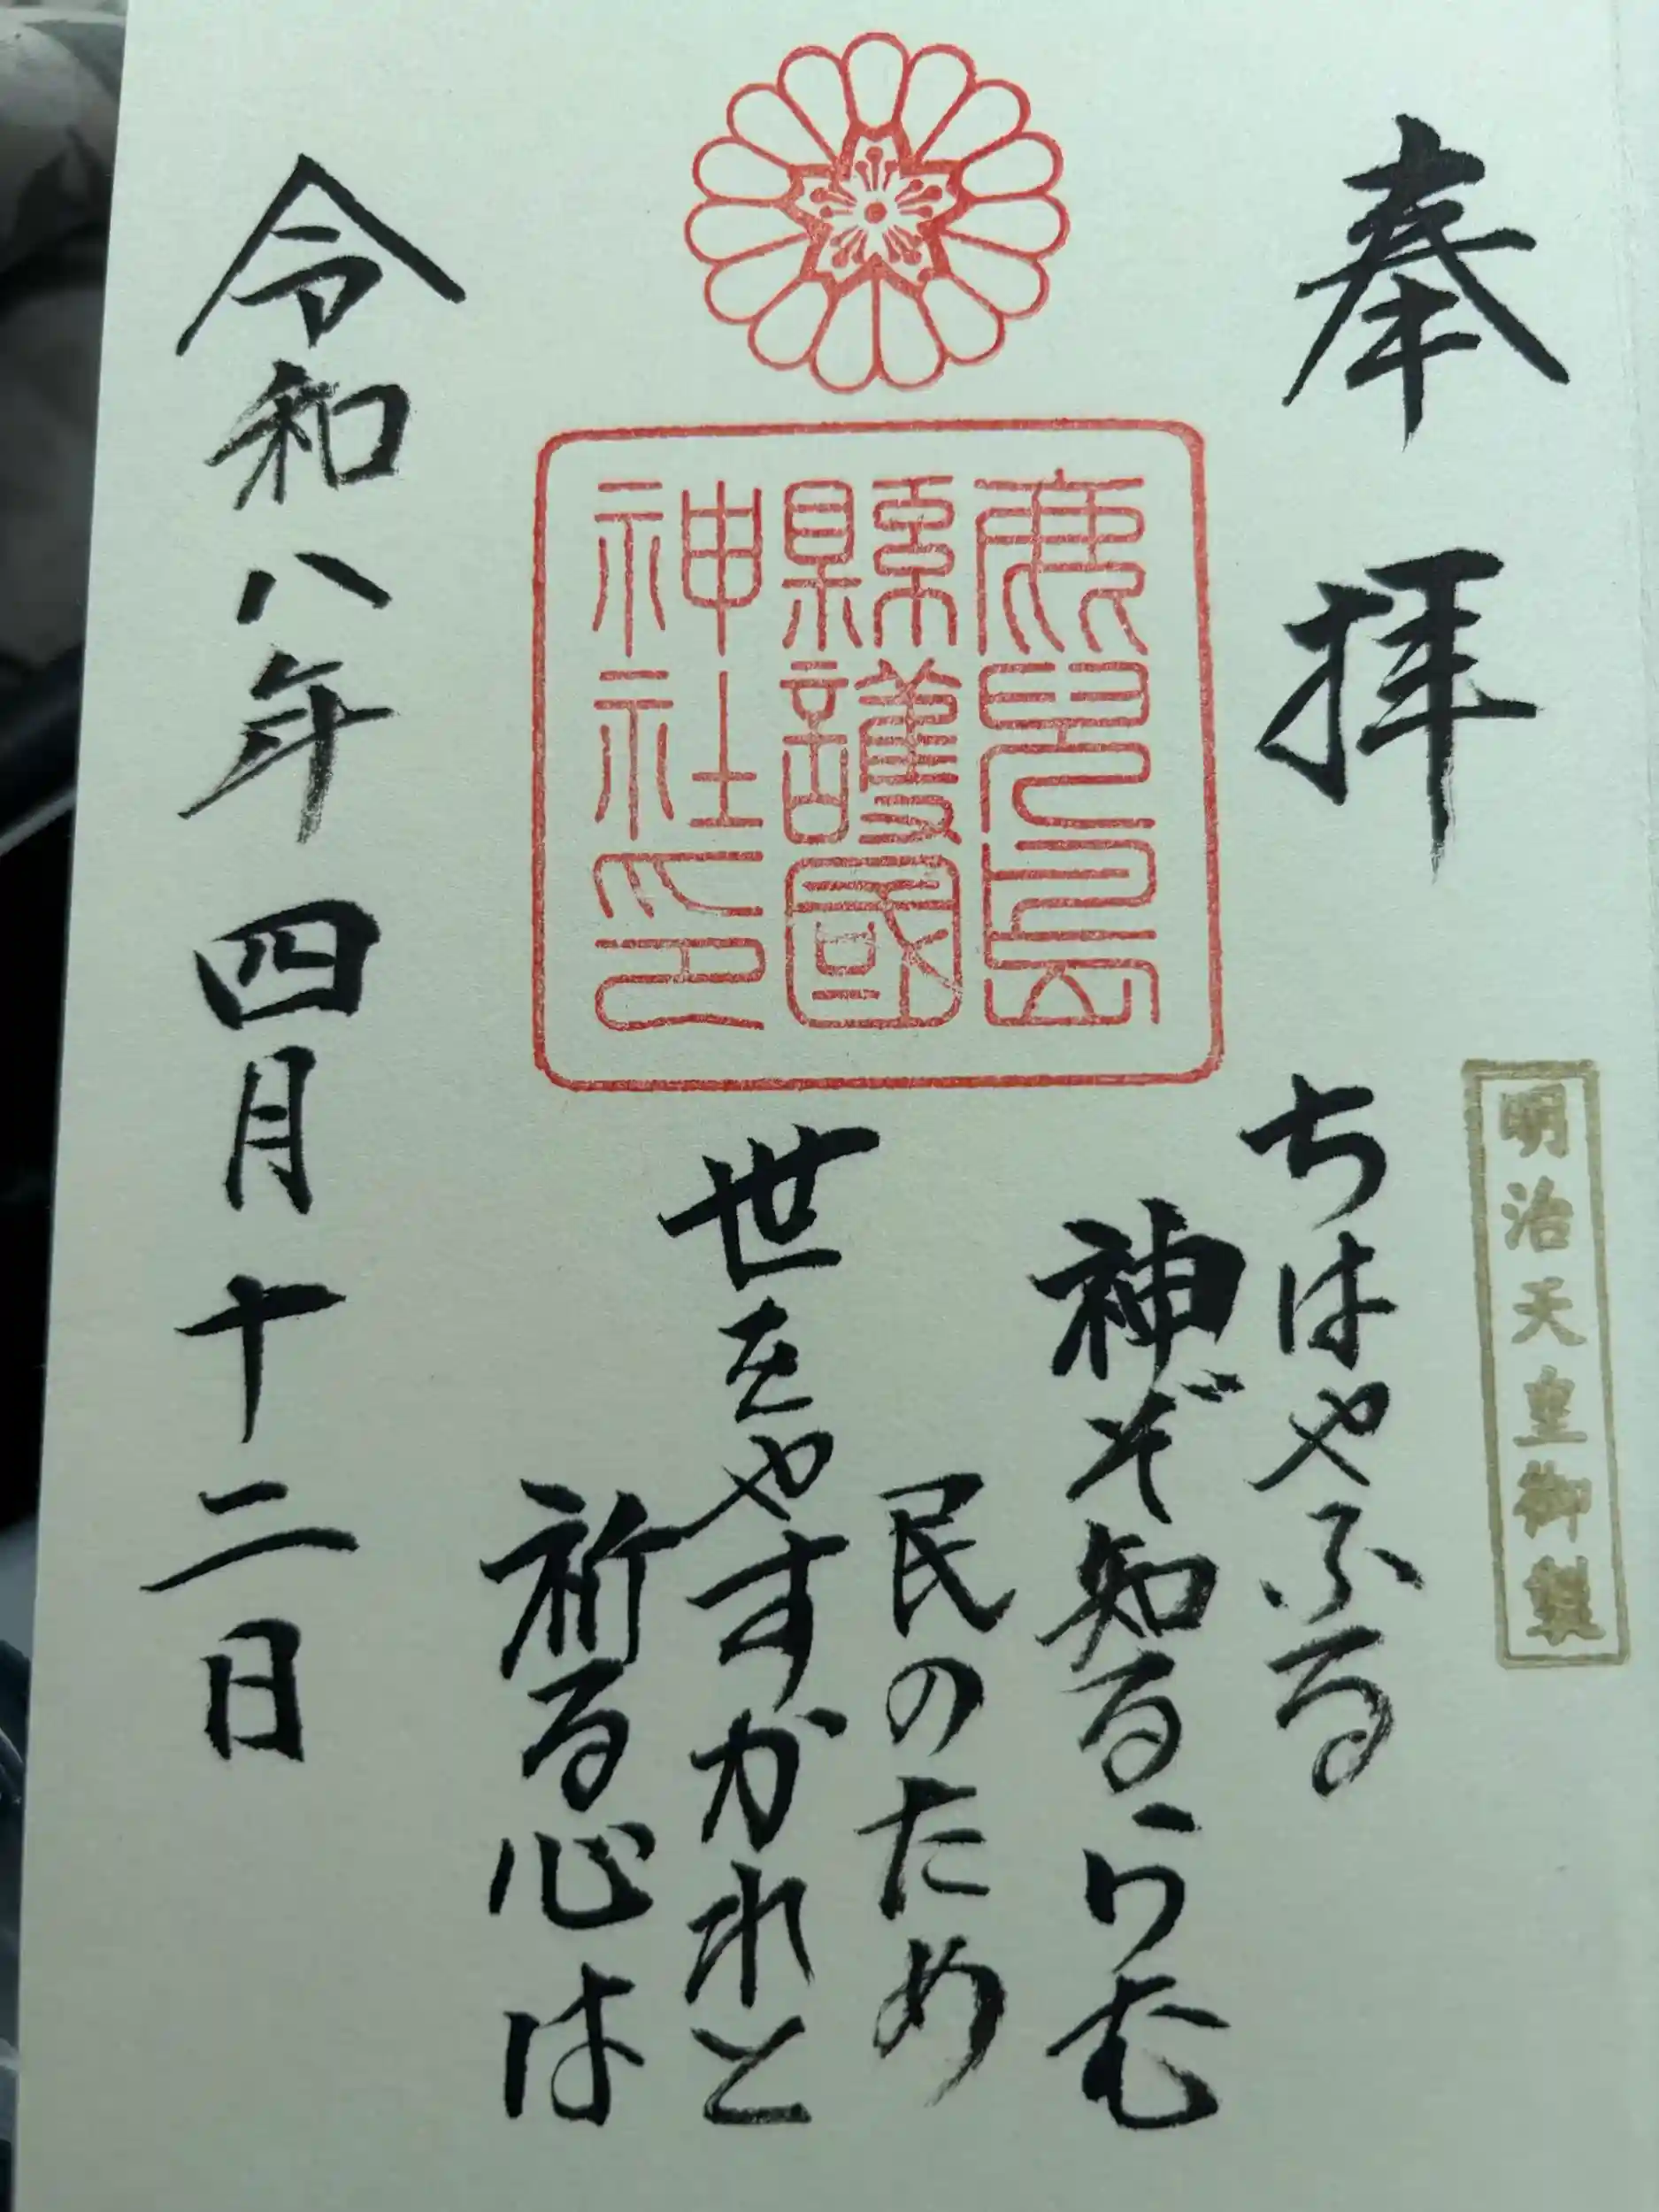 奉拝
明治天皇御製
ちはやふる
神ぞ知るらむ
民のため
世をやすかれと
祈る心は
鹿兒島
縣護國
神社印
令和八年四月十二日